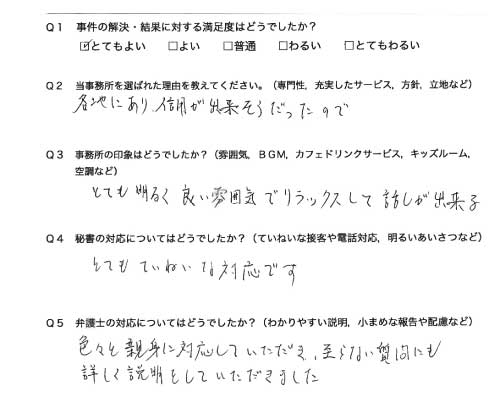 Q1 事件の解決・結果に対する満足度はどうでしたか？
☑とてもよい □よい □普通 □わるい □とてもわるい
Q2 当事務所を選ばれた理由を教えてください。（専門性，充実したサービス，方針，立地など）
各地にあり、信用が出来そうだったので
Q3 事務所の印象はどうでしたか？（雰囲気，BGM，カフェドリンクサービス，キッズルーム，
空調など）
とても明るく良い雰囲気でリラックスして話しが出来る
Q4 秘書の対応についてはどうでしたか？（ていねいな接客や電話対応，明るいあいさつなど）
とてもていねいな対応です
Q5 弁護士の対応についてはどうでしたか？（わかりやすい説明，小まめな報告や配慮など）
色々と親身に対応していただき、至らない質問にも
詳しく説明をしていただきました